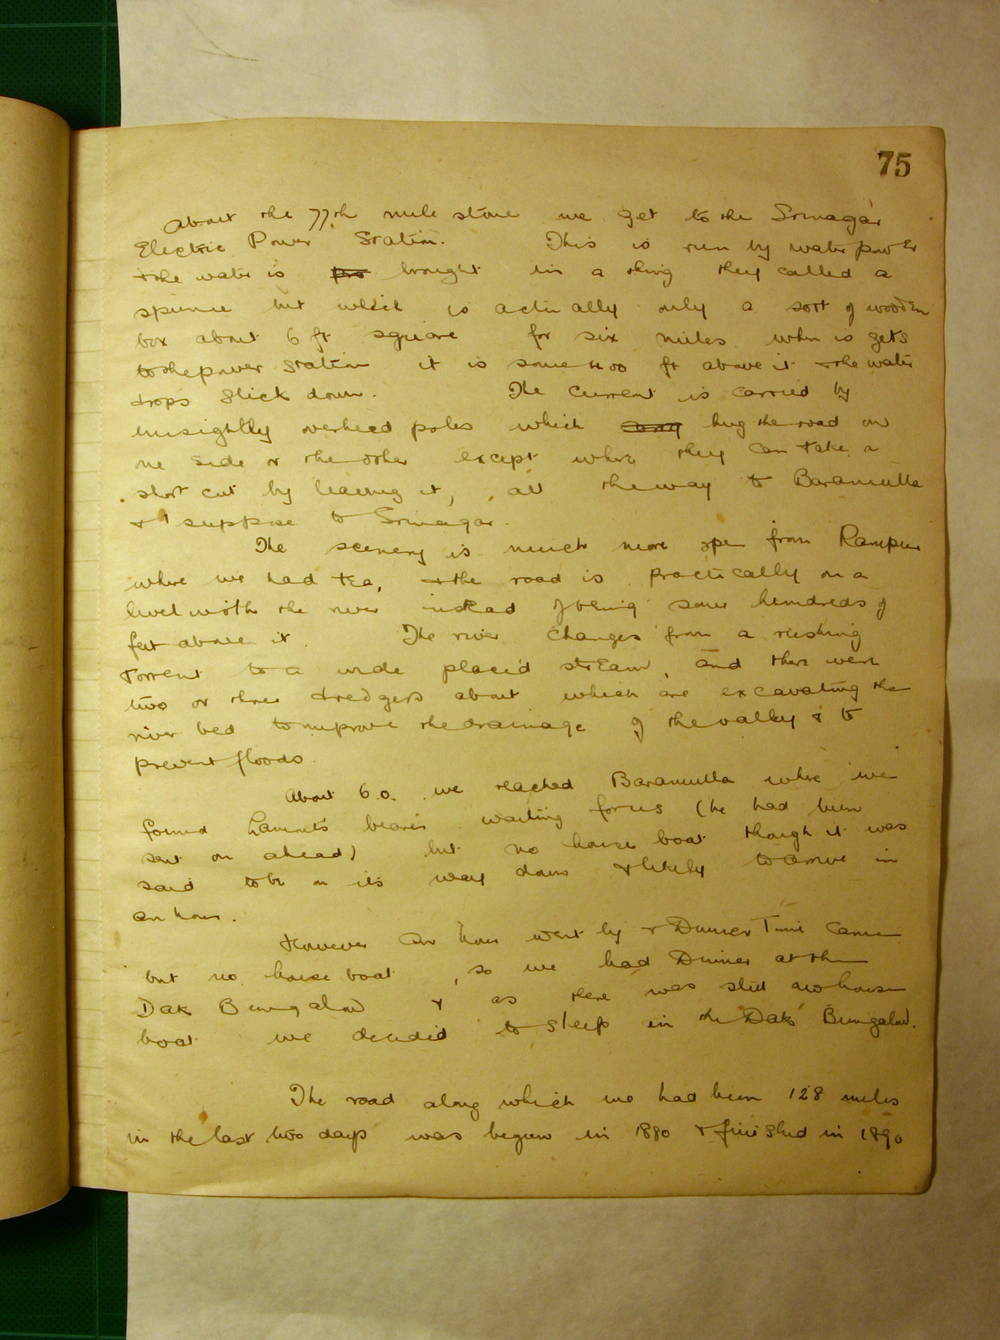 75
About the 77th mile stone we get to the Srinagar
Electric Power Station. This is run by water power
& the water is pro brought in a thing they called a
spume but which is actually only a sort of wooden
box about 6 ft square for six miles when is gets
to the power station it is some 400 ft above it & the water
drops slick down. The current is carried by
unsightly overheed poles which carry hug the road on
one side or the other except where they can take a
short cut by leaving it, all the way to Baramulla
& I suppose to Srinagar.
The scenery is much more open from Rampur
where we had tea, & the road is practically on a
level with the river instead of being some hundreds of
feet above it. The river changes from a rushing
torrent to a wide placid stream, and there were
two or three dredgers about which are excavating the
river bed to improve the drainage of the valley & to
prevent floods.
About 6.0. we reached Baramulla where we
found bearer waiting for us (he had been
sent on ahead) but no house boat though it was
said to be on its way down & likely to arrive in
an hour.
However an hour went by & Dinner Time came
but no house boat, so we had Dinner at the
Dak Bungalow & as there was still no house
boat we decided to sleep in the Dak Bungalow.
The road along which we had been 128 miles
in the last two days was begun in 1880 & finished in 1890